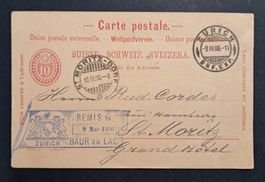 Carte postale.
Union postale universelle. Weltpostverein. Unione postale universale.
SUISSE. SCHWEIZ. SVIZZERA.
10
ST. MORITZ-DORF
10.III.06.-9
ZÜRICH
-9.III.06.-11
BRF. EXP.
Herrn Rud. Cordes
aus Hamburg
St. Moritz
Grand Hôtel
REMIS le
9 Mar 1906
ZURICH BAUR au LAC